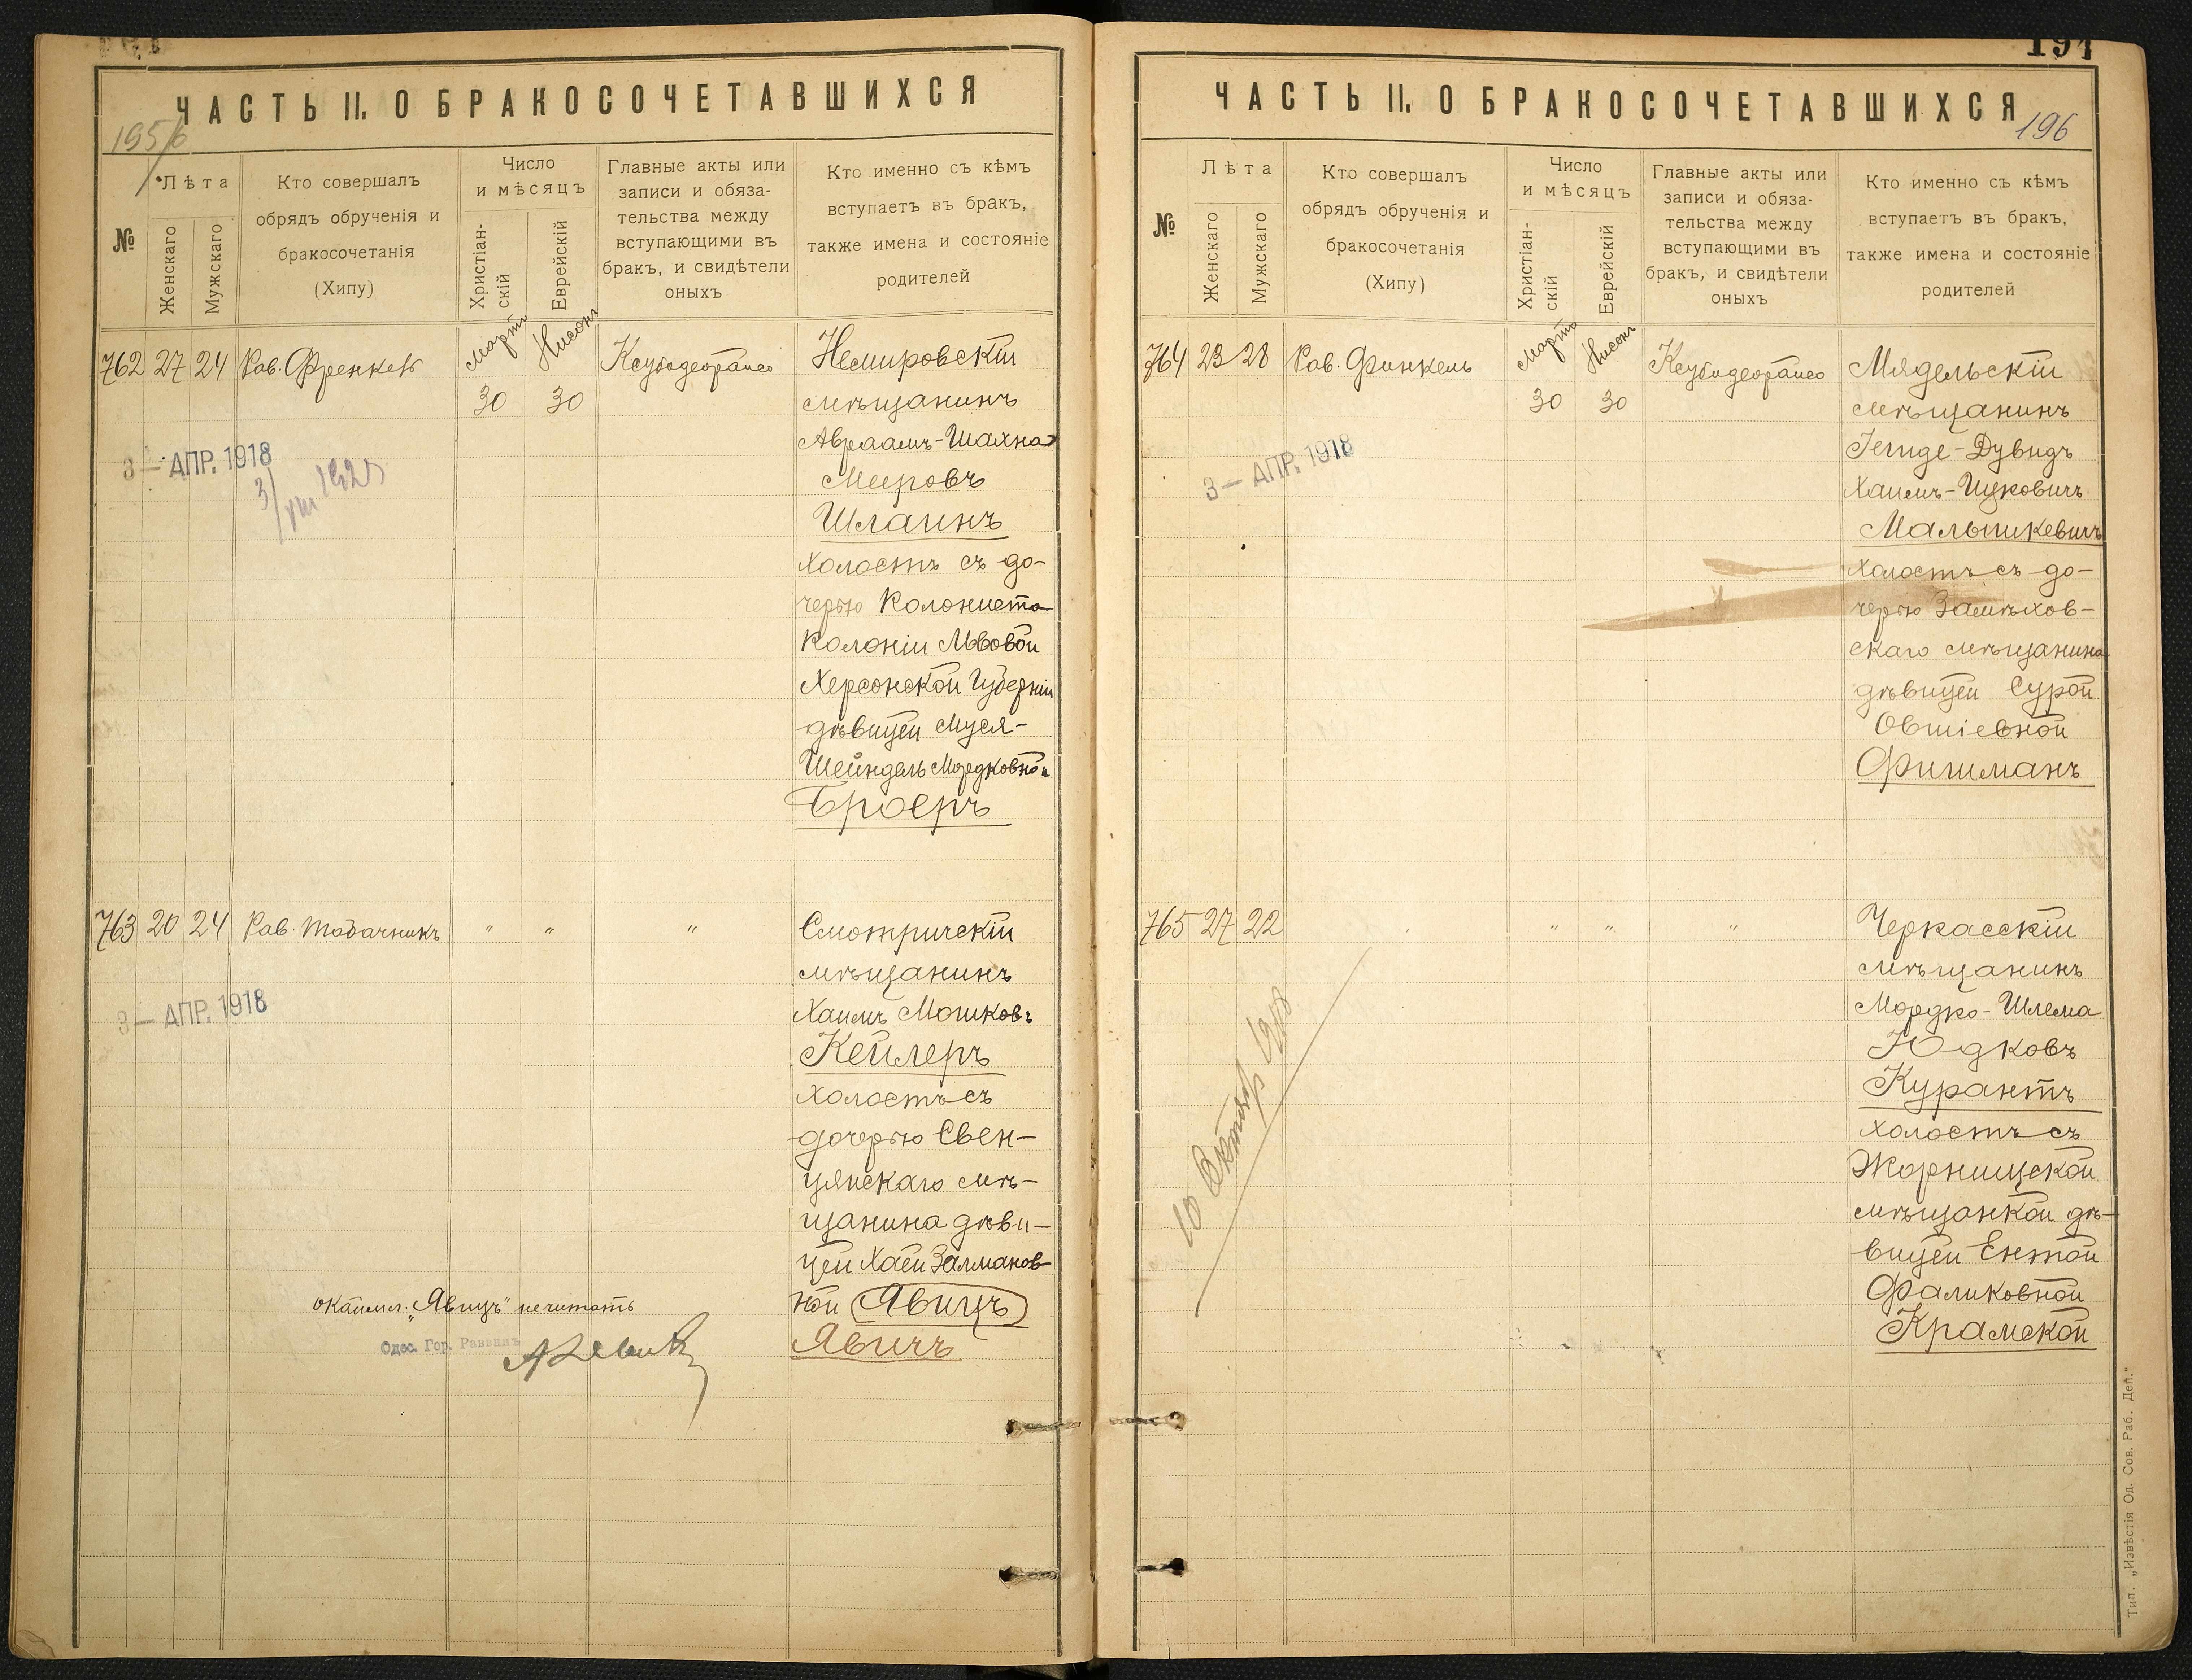 ЧАСТЬ II. О БРАКОСОЧЕТАВШИХСЯ
195/6
№
Лѣта
Женскаго
Мужскаго
Кто совершалъ
обрядъ обрученія и
бракосочетанія
(Хипу)
Число
и мѣсяцъ
Христіан-
скій
Еврейскій
Главные акты или
записи и обяза-
тельства между
вступающими въ
бракъ, и свидѣтели
оныхъ
Кто именно съ кѣмъ
вступаетъ въ бракъ,
также имена и состояніе
родителей
762 27 24 Рав. Френкель
Мартъ
30
Нисонъ
30
Немировскій
мѣщанинъ
Авраамъ-Шахна
Мееровъ
Шлаинъ
холостъ съ до-
черью Колониста
Колоніи Львовой
Херсонской Губерніи
дѣвицей Муся-
Шейндель Мордковной
Броеръ
3 — АПР. 1918
763 20 24 Рав. Табачникъ " " "
Смотричскій
мѣщанинъ
Хаимъ Мошковъ
Кейлеръ
холостъ съ
дочерью Свен-
цянскаго мѣ-
щанина дѣви-
цей Хаей Залманов-
ной Явицъ
Явичъ
3 — АПР. 1918
окаймл. „Явицъ" не читать
Одес. Гор. Раввинъ
194
ЧАСТЬ II. О БРАКОСОЧЕТАВШИХСЯ
196
№
Лѣта
Женскаго
Мужскаго
Кто совершалъ
обрядъ обрученія и
бракосочетанія
(Хипу)
Число
и мѣсяцъ
Христіан-
скій
Еврейскій
Главные акты или
записи и обяза-
тельства между
вступающими въ
бракъ, и свидѣтели
оныхъ
Кто именно съ кѣмъ
вступаетъ въ бракъ,
также имена и состояніе
родителей
764 23 28 Рав. Финкель
Мартъ
30
Нисонъ
30
Мядельскій
мѣщанинъ
Дувидъ
Хаимъ-Ицковичъ
холостъ съ до-
черью Замѣхов-
скаго мѣщанина
дѣвицей Сурой
Овшіевной
Фишманъ
3 — АПР. 1918
765 27 22 " " "
Черкасскій
мѣщанинъ
Мордко-Шлема
Юдковъ
Курантъ
холостъ съ
Жорнищской
мѣщанкой дѣ-
вицей Ентой
Фаликовной
Крамской
10 1918
Тип. „Извѣстія Од. Сов. Раб. Деп."